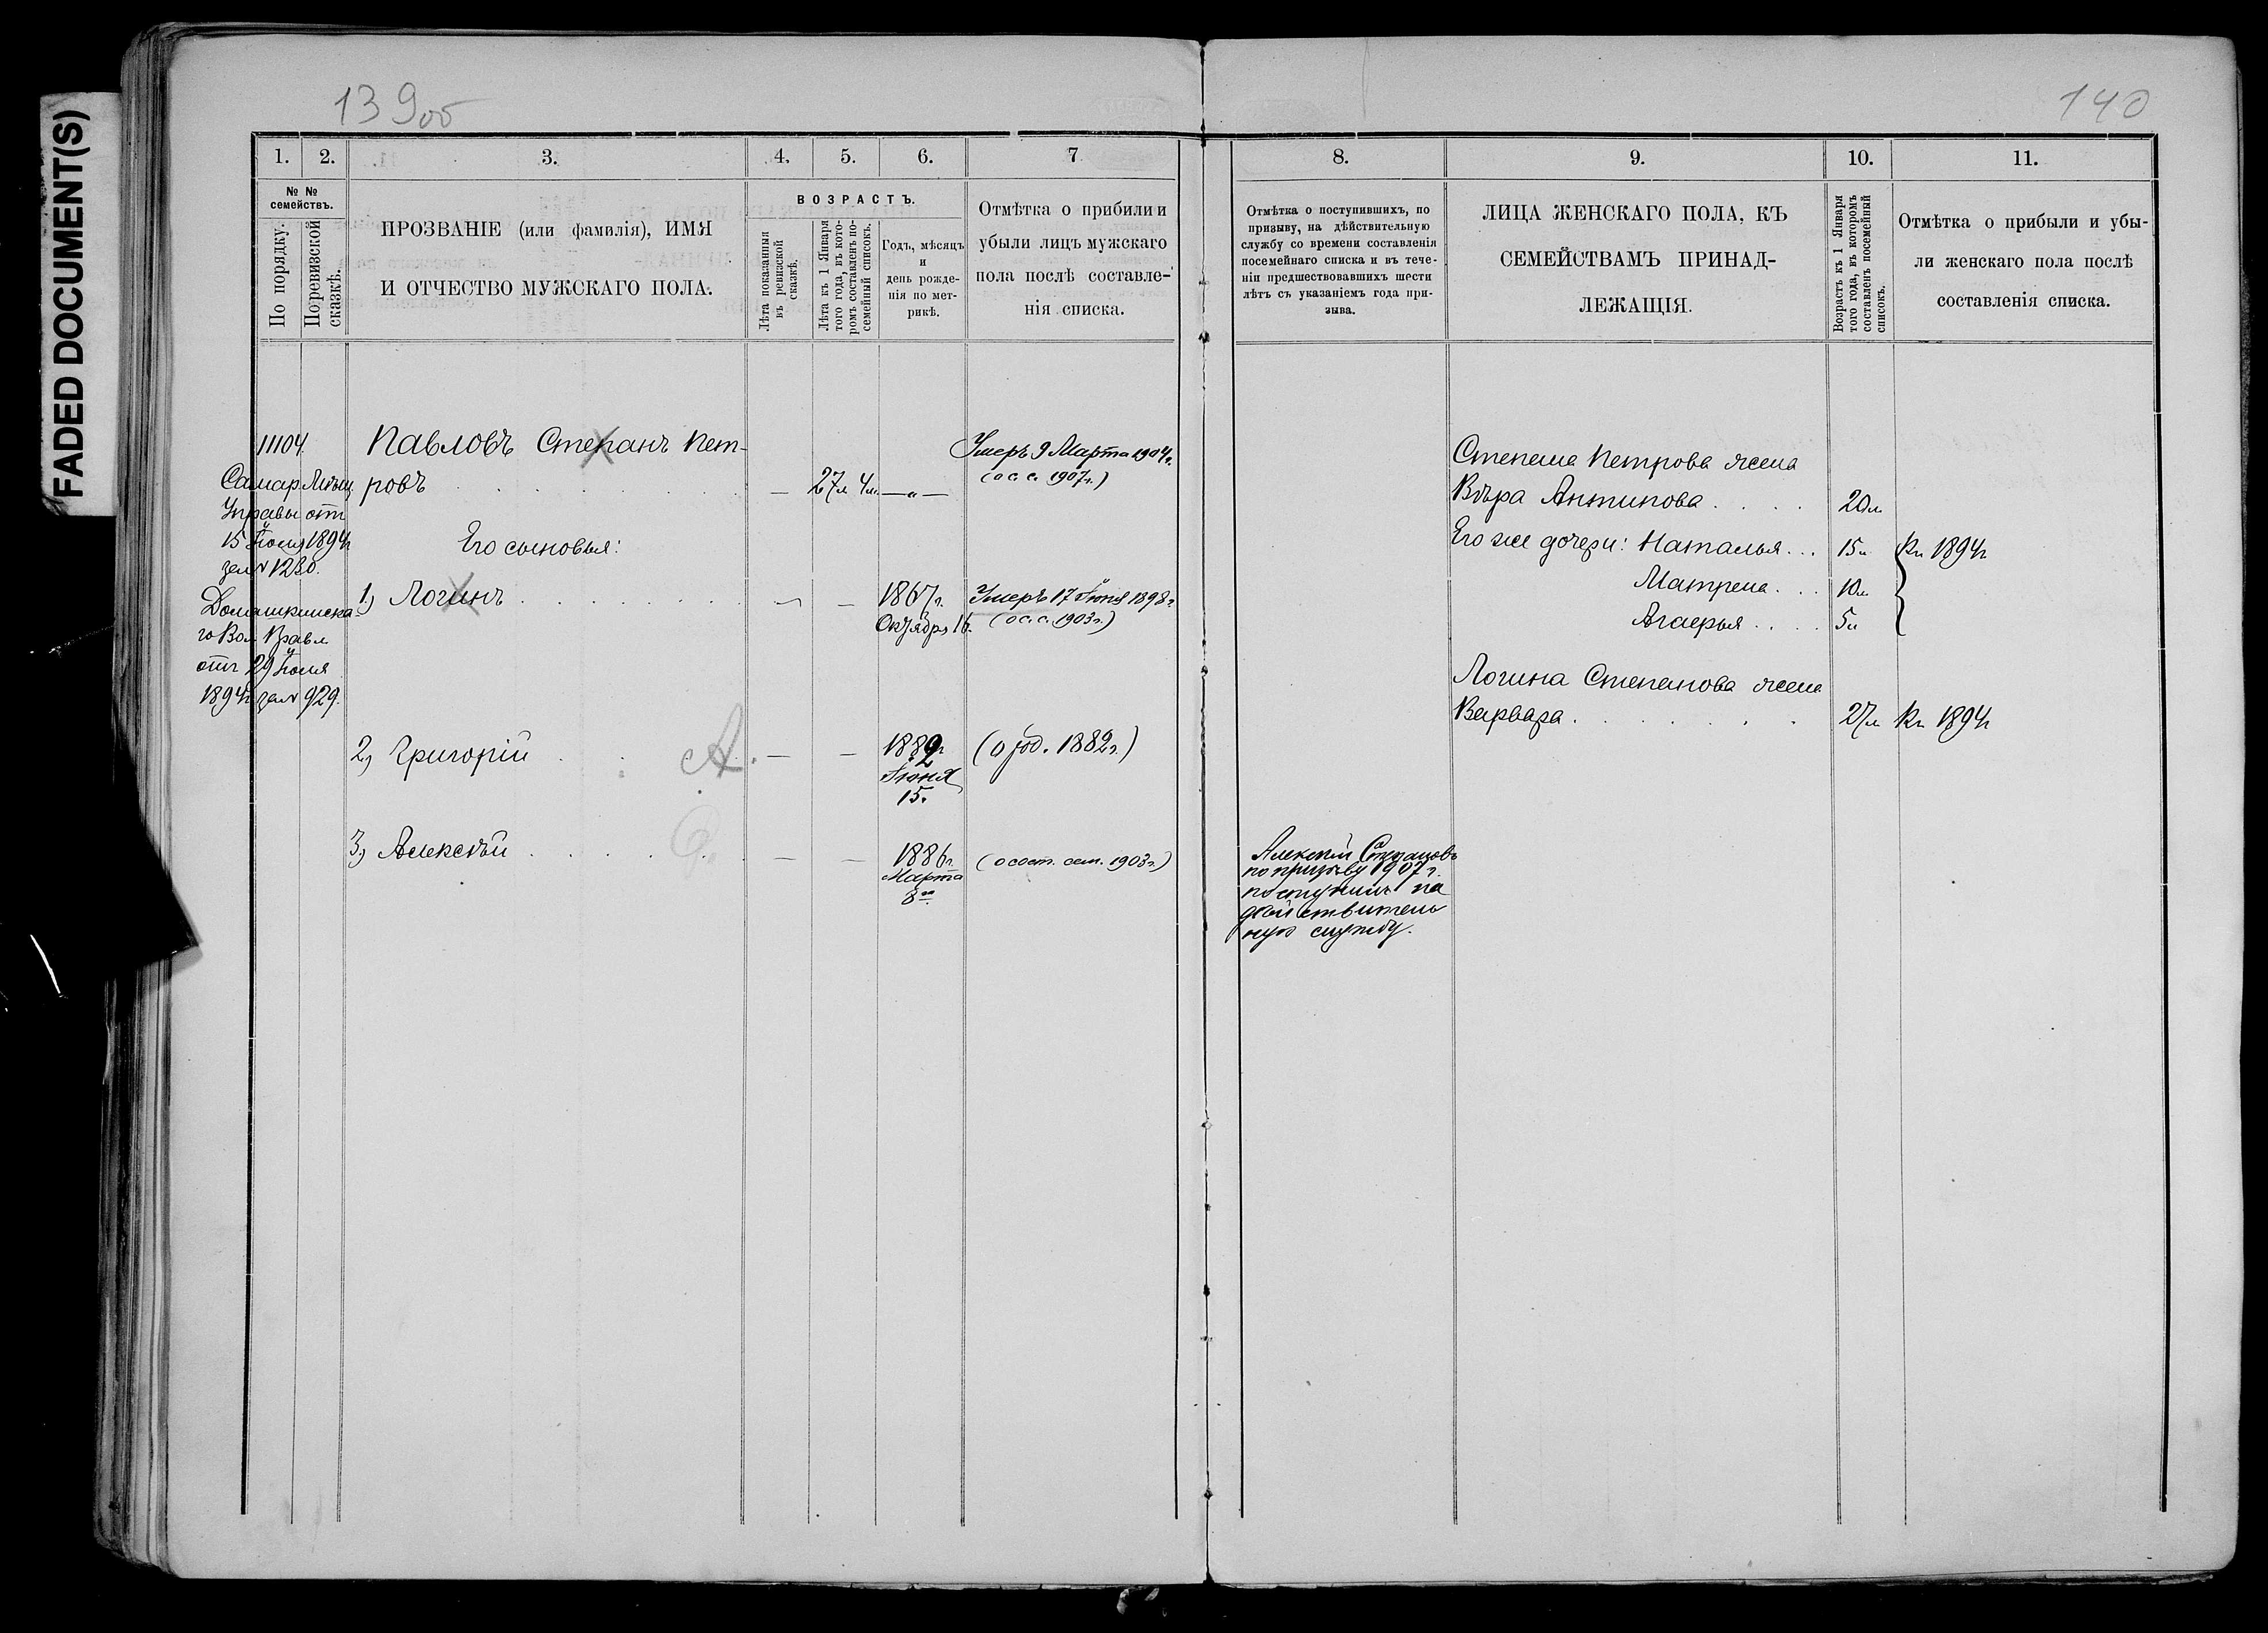 FADED DOCUMENT(S)
139об
140
1. 2. 3. 4. 5. 6. 7
№ №
семействъ.
По порядку.
По ревизской
сказкѣ.
ПРОЗВАНІЕ (или фамилія), ИМЯ
И ОТЧЕСТВО МУЖСКАГО ПОЛА.
ВОЗРАСТЪ.
Лѣта показанныя
въ ревизской
сказкѣ.
Лѣта къ 1 Января
того года, въ кото-
ромъ составленъ по-
семейный списокъ.
Годъ, мѣсяцъ
и
день рожде-
нія по мет-
рикѣ.
Отмѣтка о прибыли и
убыли лицъ мужскаго
пола послѣ составле-
нія списка.
11104.
Самар. Мѣщ.
Управы отъ
15 Іюля 1894г
за № 1230.
Домашкинска-
го Вол. Правл
отъ 29 Іюля
1894г за № 929.
Павловъ Степанъ Пет-
ровъ . . . . . . — 27л 4м — „ —
Умеръ 9 Марта 1904г.
(о с. с. 1907г.)
Его сыновья:
1.) Логинъ . . . . . . . — —
1867г.
Октября 16.
Умеръ 17 Іюня 1898г
(о с. с. 1903г.)
2.) Григорій . . А. — —
1882г
2
Іюня
15.
(о род. 1882г.)
3.) Алексѣй . . . . . . — —
1886г.
Марта
8го
(о сост. сем. 1903г.)
8. 9. 10. 11.
Отмѣтка о поступившихъ, по
призыву, на дѣйствительную
службу со времени составленія
посемейнаго списка и въ тече-
ніи предшествовавшихъ шести
лѣтъ съ указаніемъ года при-
зыва.
ЛИЦА ЖЕНСКАГО ПОЛА, КЪ
СЕМЕЙСТВАМЪ ПРИНАД-
ЛЕЖАЩІЯ.
Возрастъ къ 1 Января
того года, въ которомъ
составленъ посемейный
списокъ.
Отмѣтка о прибыли и убы-
ли женскаго пола послѣ
составленія списка.
Степана Петрова жена
Вѣра Антипова . . . . 20л
Его же дочери: Наталья . . . 15л Къ 1894г
Матрена . . . 10л
Агаѳья . . . . 5л
Логина Степанова жена
Варвара . . . . . . 27л Къ 1894г
Алексѣй Степановъ
по призыву 1907г.
поступилъ на
дѣйствитель
ную службу.